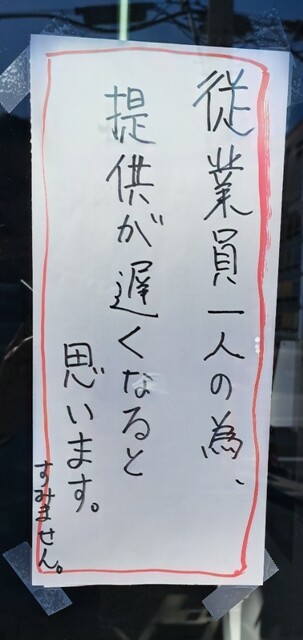 従業員一人の為、
提供が遅くなると
思います。
すみません。